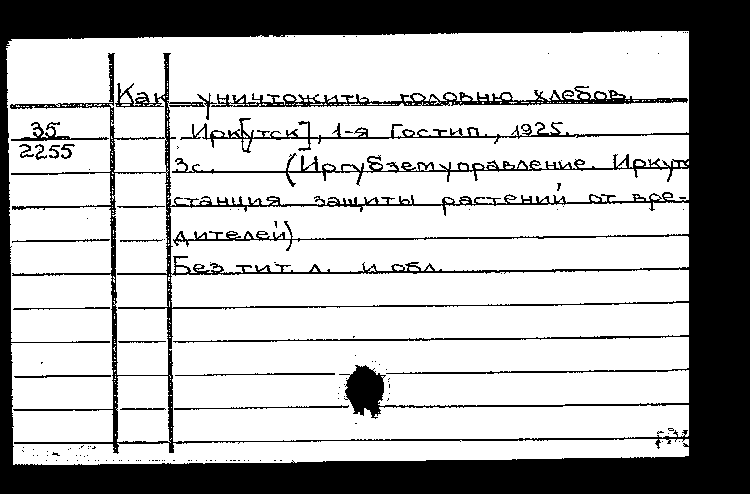 Как уничтожить головню хлебов.
35
2255
Ирк[утск], 1-я Гостип., 1925.
3с. (Иргубземуправление. Иркутс
станция защиты растений от вре-
дителей).
Без тит. л. и обл.